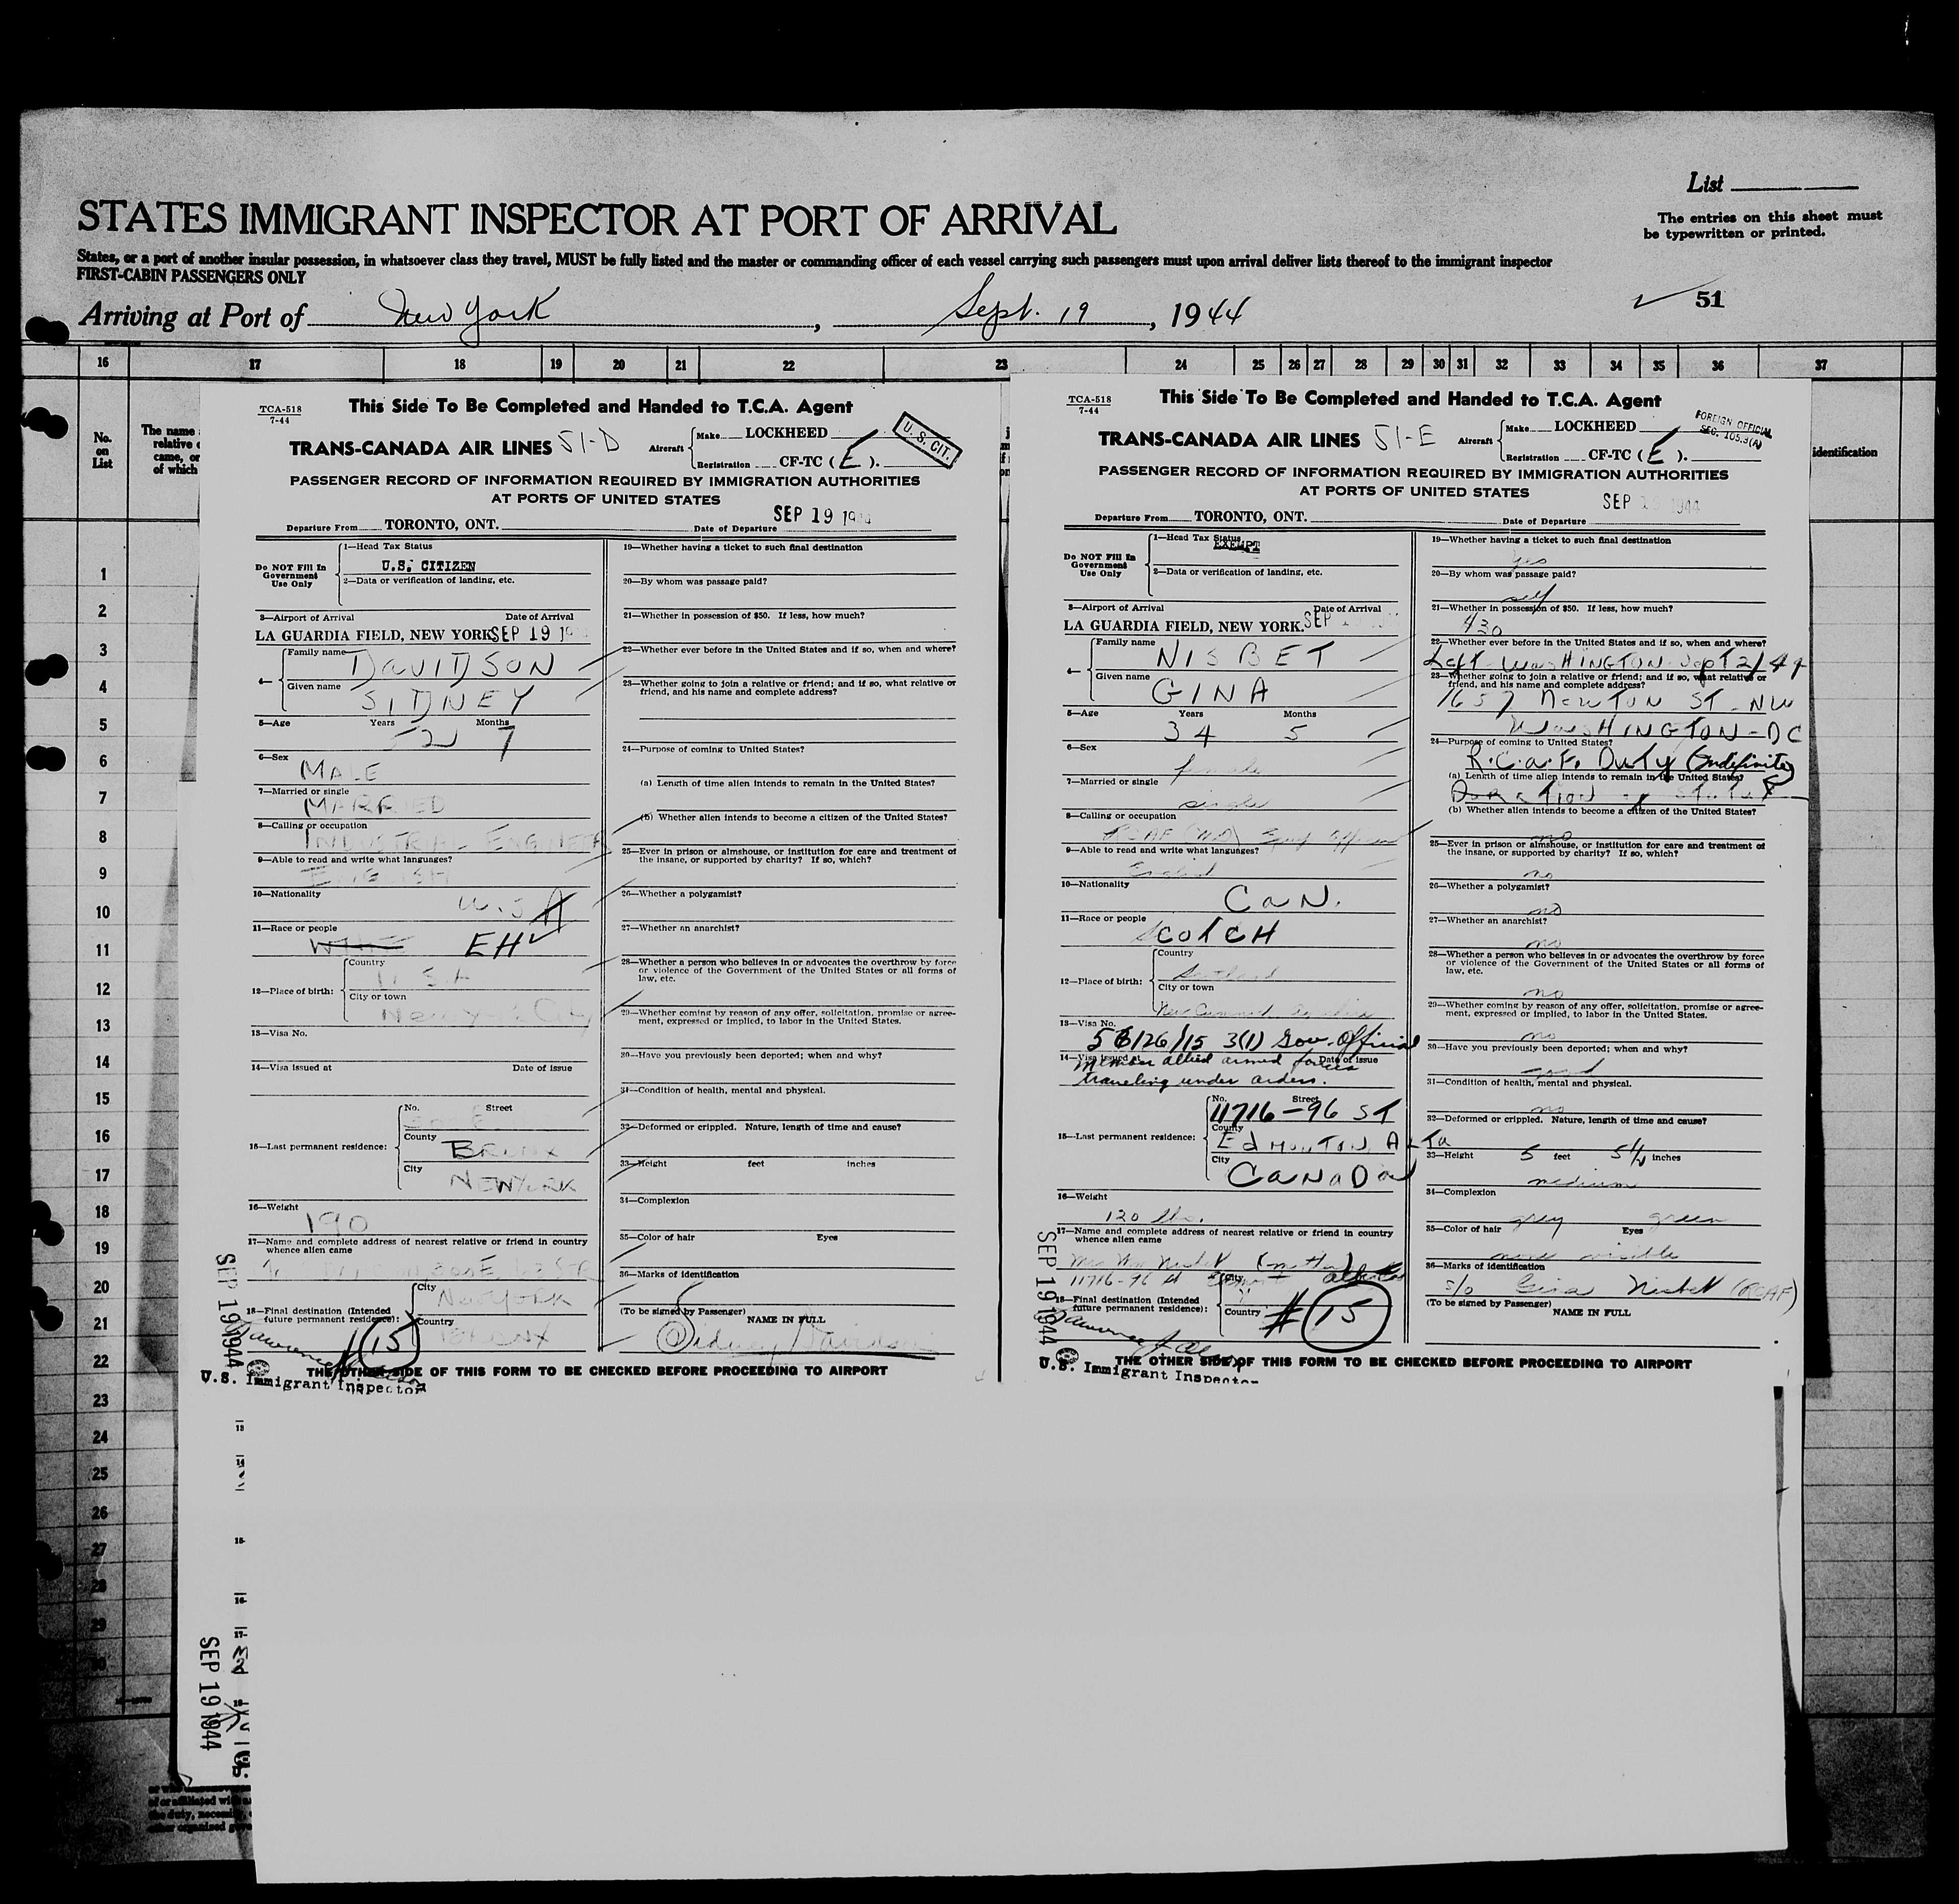 List
STATES IMMIGRANT INSPECTOR AT PORT OF ARRIVAL
The entries on this sheet must
be typewritten or printed.
States, or a port of another insular possession, in whatsoever class they travel, MUST be fully listed and the master or commanding officer of each vessel carrying such passengers must upon arrival deliver lists thereof to the immigrant inspector
FIRST-CABIN PASSENGERS ONLY
51
Arriving at Port of New York, Sept. 19, 1944
16 17 18 19 20 21 22 23 24 25 26 27 28 29 30 31 32 33 34 35 36 37
No.
on
List
The name
relative
came, or
of which
identification
1
2
3
4
5
6
7
8
9
10
11
12
13
14
15
16
17
18
19
20
21
22
23
24
25
26
27
28
29
TCA-518
7-44
This Side To Be Completed and Handed to T.C.A. Agent
TRANS-CANADA AIR LINES 51-D
Aircraft Make LOCKHEED
Registration CF-TC (E).
U.S. CIT.
PASSENGER RECORD OF INFORMATION REQUIRED BY IMMIGRATION AUTHORITIES
AT PORTS OF UNITED STATES
Departure From TORONTO, ONT. Date of Departure SEP 19
Do NOT Fill In
Government
Use Only
1—Head Tax Status
U.S. CITIZEN
2—Data or verification of landing, etc.
3—Airport of Arrival Date of Arrival
LA GUARDIA FIELD, NEW YORK SEP 19
4— Family name DAVIDSON
Given name SIDNEY
5—Age Years 52 Months 7
6—Sex
MALE
7—Married or single
MARRIED
8—Calling or occupation
INDUSTRIAL ENGINEER
9—Able to read and write what languages?
ENGLISH
10—Nationality
U.S.A
11—Race or people
EH
12—Place of birth: Country
U.S.A
City or town
New York City
13—Visa No.
14—Visa issued at Date of issue
15—Last permanent residence: No. Street
County
BRONX
City
NEWYORK
16—Weight
190
17—Name and complete address of nearest relative or friend in country
whence alien came
18—Final destination (Intended
future permanent residence):
City
New York
Country
BRONX
15
19—Whether having a ticket to such final destination
20—By whom was passage paid?
21—Whether in possession of $50. If less, how much?
22—Whether ever before in the United States and if so, when and where?
23—Whether going to join a relative or friend; and if so, what relative or
friend, and his name and complete address?
24—Purpose of coming to United States?
(a) Length of time alien intends to remain in the United States?
(b) Whether alien intends to become a citizen of the United States?
25—Ever in prison or almshouse, or institution for care and treatment of
the insane, or supported by charity? If so, which?
26—Whether a polygamist?
27—Whether an anarchist?
28—Whether a person who believes in or advocates the overthrow by force
or violence of the Government of the United States or all forms of
law, etc.
29—Whether coming by reason of any offer, solicitation, promise or agree-
ment, expressed or implied, to labor in the United States.
30—Have you previously been deported; when and why?
31—Condition of health, mental and physical.
32—Deformed or crippled. Nature, length of time and cause?
33—Height feet inches
34—Complexion
35—Color of hair Eyes
36—Marks of identification
(To be signed by Passenger) NAME IN FULL
Sidney Davidson
THE OTHER SIDE OF THIS FORM TO BE CHECKED BEFORE PROCEEDING TO AIRPORT
SEP 19 1944
U.S. Immigrant Inspector
TCA-518
7-44
This Side To Be Completed and Handed to T.C.A. Agent
TRANS-CANADA AIR LINES 51-E
Aircraft Make LOCKHEED
Registration CF-TC (E).
FOREIGN OFFICIAL
SEC. 105.3(A)
PASSENGER RECORD OF INFORMATION REQUIRED BY IMMIGRATION AUTHORITIES
AT PORTS OF UNITED STATES
Departure From TORONTO, ONT. Date of Departure SEP 1944
Do NOT Fill In
Government
Use Only
1—Head Tax Status
EXEMPT
2—Data or verification of landing, etc.
3—Airport of Arrival Date of Arrival
LA GUARDIA FIELD, NEW YORK. SEP
4— Family name NISBET
Given name GINA
5—Age Years 34 Months 5
6—Sex
female
7—Married or single
single
8—Calling or occupation
9—Able to read and write what languages?
English
10—Nationality
CAN.
11—Race or people
SCOTCH
12—Place of birth: Country
Scotland
City or town
New Cumnock Ayrshire
13—Visa No.
3(1) Gov. Official
14—Visa issued at Date of issue
Member allied armed forces
traveling under orders.
15—Last permanent residence: No. Street
11716-96 ST
County
EDMONTON ALTA
City
CANADA
16—Weight
120 lbs.
17—Name and complete address of nearest relative or friend in country
whence alien came
Mrs Wm Nisbet (mother)
11716-96 St Alberta
18—Final destination (Intended
future permanent residence):
City
Country
# 15
19—Whether having a ticket to such final destination
yes
20—By whom was passage paid?
self
21—Whether in possession of $50. If less, how much?
430
22—Whether ever before in the United States and if so, when and where?
Left WASHINGTON Sept 2/44
23—Whether going to join a relative or friend; and if so, what relative or
friend, and his name and complete address?
1657 NEWTON ST-NW
WASHINGTON-DC
24—Purpose of coming to United States?
R.C.A.F. Duty (Indefinite)
(a) Length of time alien intends to remain in the United States?
(b) Whether alien intends to become a citizen of the United States?
no
25—Ever in prison or almshouse, or institution for care and treatment of
the insane, or supported by charity? If so, which?
no
26—Whether a polygamist?
no
27—Whether an anarchist?
no
28—Whether a person who believes in or advocates the overthrow by force
or violence of the Government of the United States or all forms of
law, etc.
no
29—Whether coming by reason of any offer, solicitation, promise or agree-
ment, expressed or implied, to labor in the United States.
no
30—Have you previously been deported; when and why?
good
31—Condition of health, mental and physical.
no
32—Deformed or crippled. Nature, length of time and cause?
33—Height 5 feet 5½ inches
medium
34—Complexion
grey green
35—Color of hair Eyes
none visible
36—Marks of identification
s/o Gina Nisbet (RCAF)
(To be signed by Passenger) NAME IN FULL
THE OTHER SIDE OF THIS FORM TO BE CHECKED BEFORE PROCEEDING TO AIRPORT
SEP 19 1944
U.S. Immigrant Inspector
SEP 19 1944